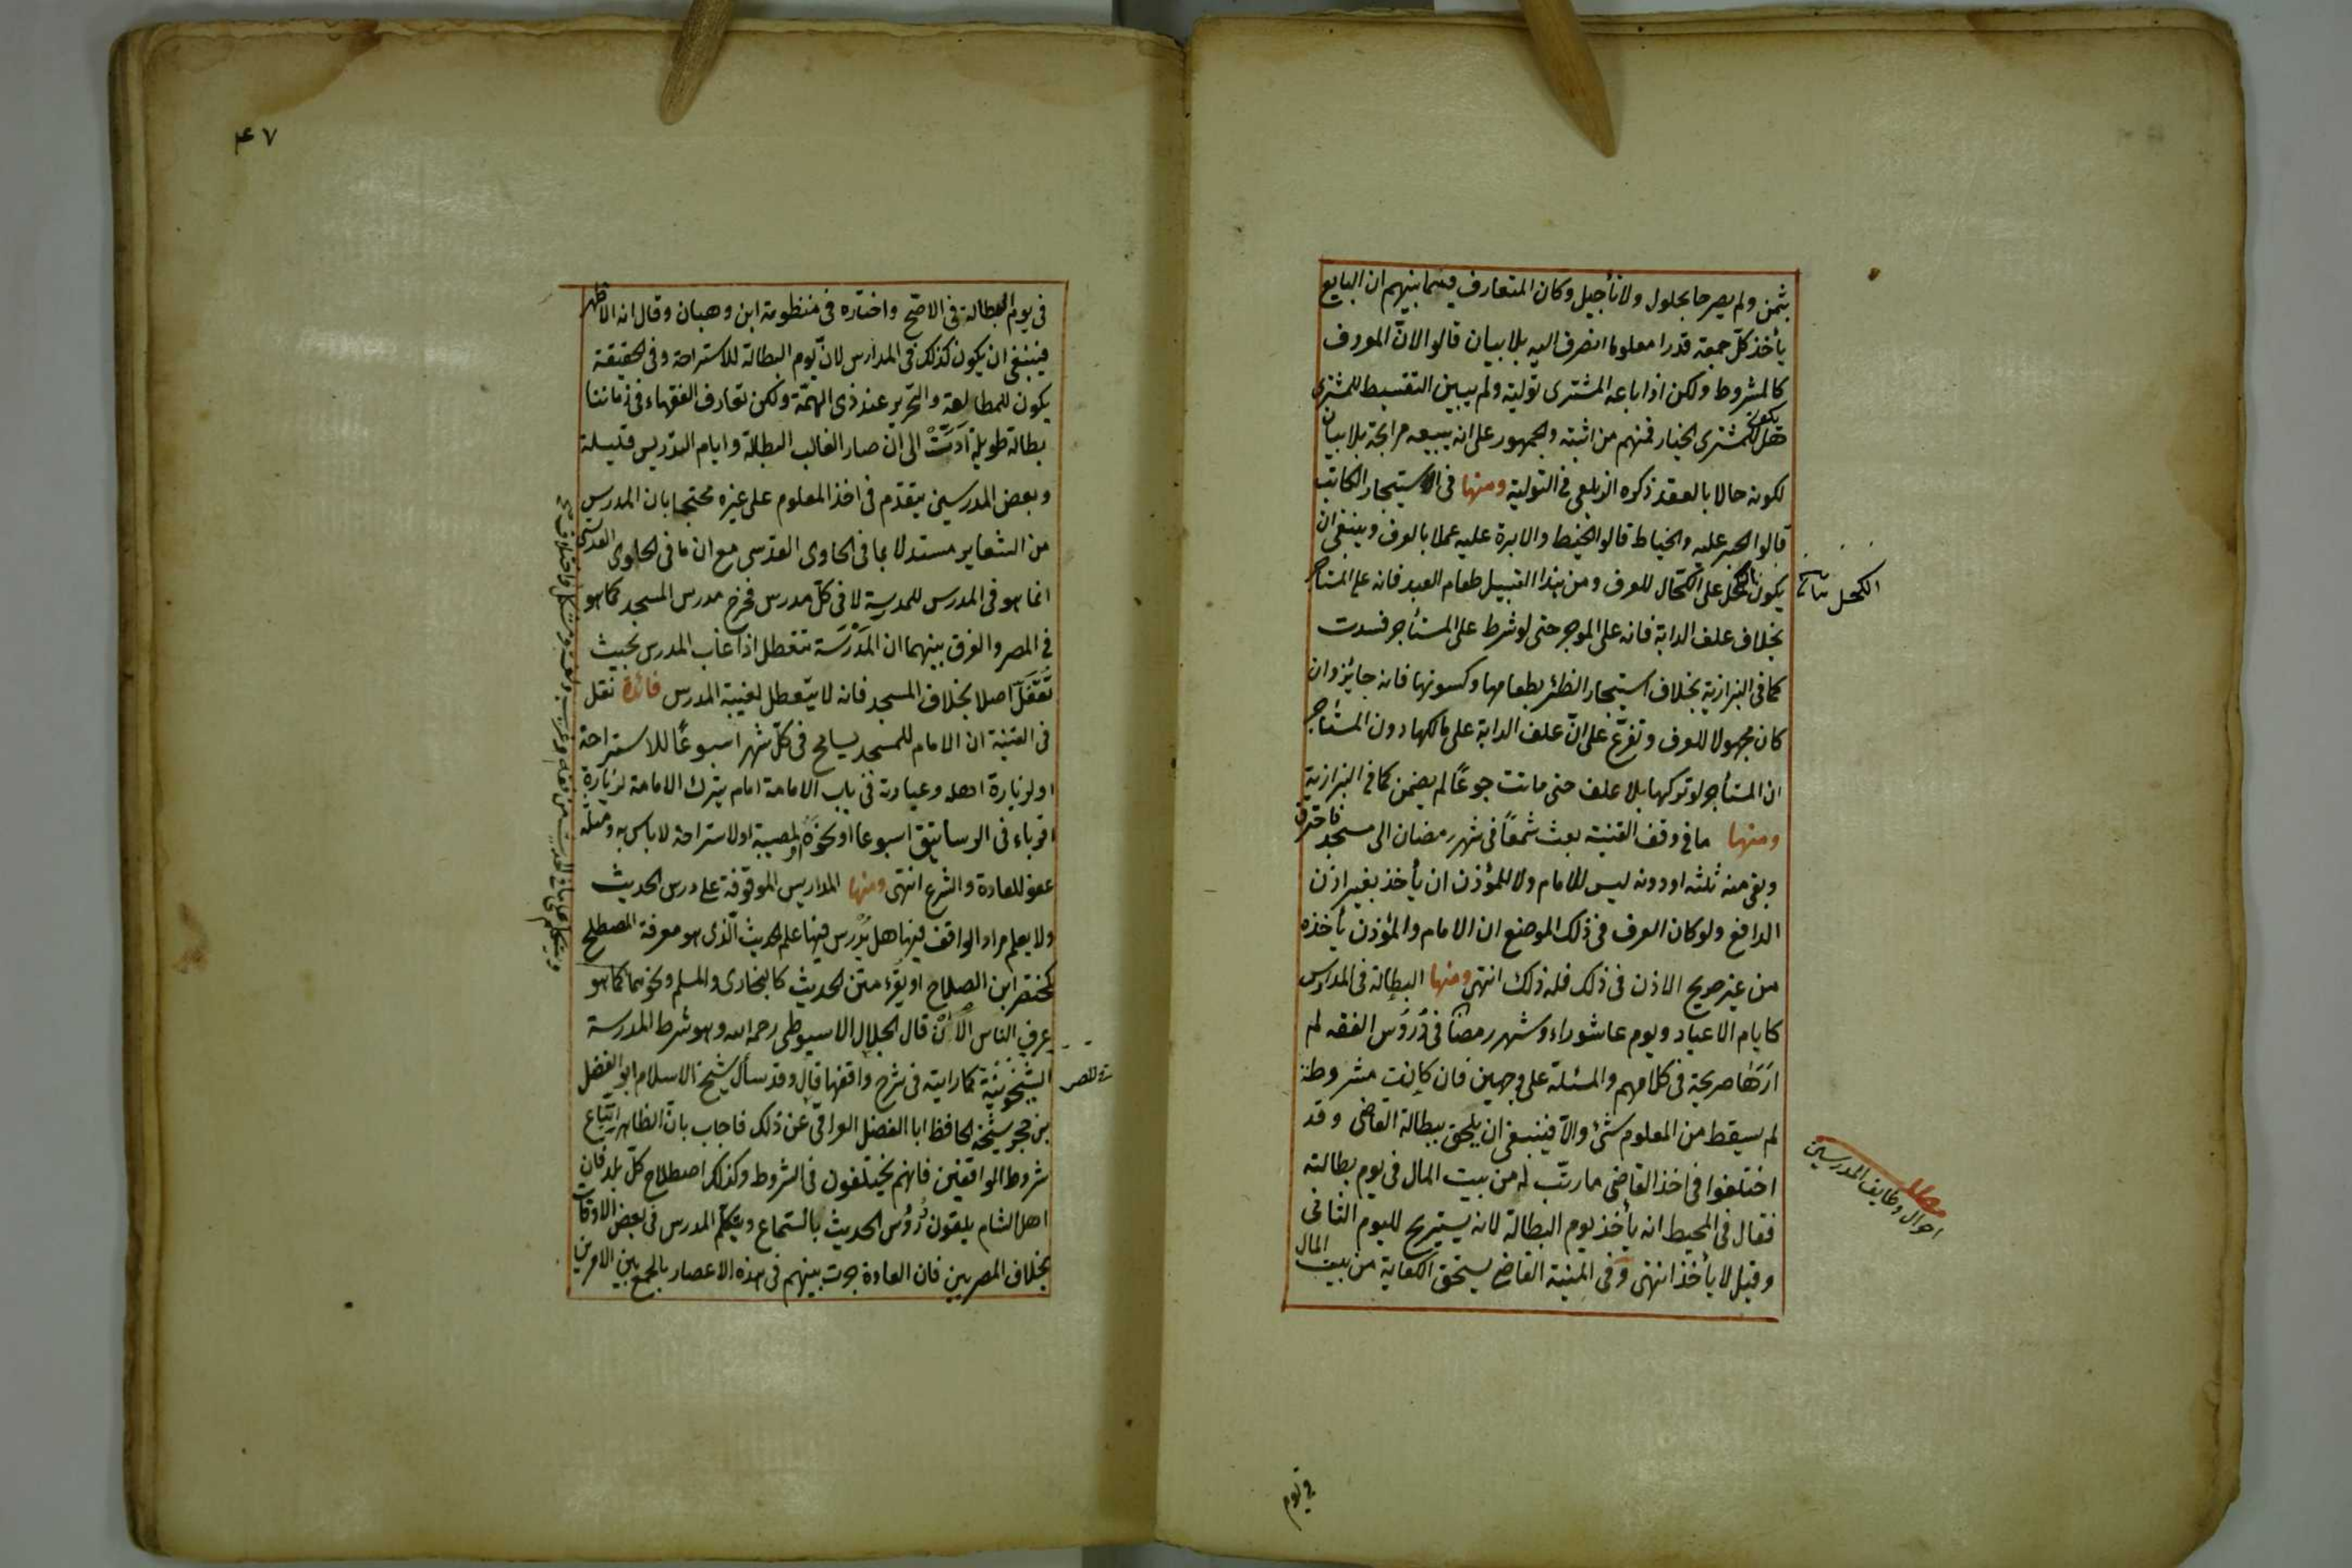 بثمن ولم يصرحا بحلول ولا تأجيل وكان المتعارف فيما بينهم ان البايع
يأخذ كلّ جمعة قدرا معلوما انصرف اليه بلا بيان قالوا لانّ المعروف
كالمشروط ولكن اذا باعه المشترى تولية ولم يبين التقسيط للمشترى
هل يكون للمشترى الخيار فمنهم من اثبته والجمهور على انه يبيعه مرابحة بلا بيان
لكونه حالا بالعقد ذكره الزيلعى فى التولية ومنها فى الاستيجار الكاتب
قالوا الحبر عليه والخياط قالوا الخيط والابرة عليه عملا بالعرف وينبغى ان
يكون الكحل على الكحّال للعرف ومن هذا القبيل طعام العبد فانه على المستأجر
بخلاف علف الدابة فانه على الموجر حتى لو شرط على المستأجر فسدت
كما فى البزازية بخلاف استيجار الظئر بطعامها وكسوتها فانه جايز وان
كان مجهولا للعرف وتفرّع على انّ علف الدابة على مالكها دون المستأجر
ان المستأجر لو تركها بلا علف حتى ماتت جوعًا لم يضمن كما فى البزازية
ومنها ما فى وقف القنية بعث شمعًا فى شهر رمضان الى مسجد فاحترق
وبقى منه ثلثه او دونه ليس للامام ولا للمؤذن ان يأخذ بغير اذن
الدافع ولو كان العرف فى ذلك الموضع ان الامام والمؤذن يأخذه
من غير صريح الاذن فى ذلك فله ذلك انتهى ومنها البطالة فى المدارس
كايام الاعياد ويوم عاشوراء وشهر رمضان فى دُرُوس الفقه لم
ارَهَا صريحة فى كلامهم والمسئلة على وجهين فان كانت مشروطة
لم يسقط من المعلوم شئ والّا فينبغى ان يلحق ببطالة القاضى وقد
اختلفوا فى اخذ القاضى ما رتّب له من بيت المال فى يوم بطالته
فقال فى المحيط انه يأخذ يوم البطالة لانه يستريح لليوم الثانى
وقيل لا يأخذ انتهى وفى المنية القاضى يستحق الكفاية من بيت المال
الكحل
مطلب
احوال وظايف المدرسين
فى يوم
٤٧
فى يوم البطالة فى الاصحّ واختاره فى منظومة ابن وهبان وقال انه الاظهر
فينبغى ان يكون كذلك فى المدارس لانّ يوم البطالة للاستراحة وفى الحقيقة
يكون للمطالعة والتحرير عند ذى الهمّة ولكن تعارف الفقهاء فى زماننا
بطالة طويلة ادَّتْ الى ان صار الغالب البطالة وايام التدريس قليلة
وبعض المدرسين يتقدّم فى اخذ المعلوم على غيره محتجا بان المدرس
من الشعاير مستدلا بما فى الحاوى القدسى مع ان ما فى الحاوى القدسى
انما هو فى المدرس للمدرسة لا فى كلّ مدرس فخرج مدرس المسجد كما هو
فى المصر والفرق بينهما ان المَدْرَسَة تتعطل اذا غاب المدرس بحيث
تَعَطَّلَ اصلا بخلاف المسجد فانه لا يتعطل لغيبة المدرس فائدة نقل
فى القنية ان الامام للمسجد يسامح فى كلّ شهر اسبوعًا للاستراحة
او لزيارة اهله وعبارته فى باب الامامة امام يترك الامامة لزيارة
اقرباء فى الرساتيق اسبوعا او نحوه او لمصيبة او لاستراحة لا باس به ومثله
عفو للعادة والشرع انتهى ومنها المداريس الموقوفة على درس الحديث
ولا يعلم مراد الواقف فيها هل يُدْرس فيها علم الحديث الّذى هو معرفة المصطلح
كمختصر ابن الصلاح او يقرء متن الحديث كالبخارى والمسلم ونحوهما كما هو
عرف الناس الْآنْ قال الجلال الاسيوطى رحمه الله وهو شرط المدرسة
الشيخونيّة كما رايته فى شرح واقفها قال وقد سأل شيخ الاسلام ابو الفضل
بن حجر شيخه الحافظ ابا الفضل العراقى عن ذلك فاجاب بانّ الظاهر اتّباع
شروط الواقفين فانهم يختلفون فى الشروط وكذلك اصطلاح كلّ بلد فان
اهل الشام يلقون دُرُوس الحديث بالستماع ويتكلّم المدرس فى بعض الاوقات
بخلاف المصريين فان العادة جرت بينهم فى هذه الاعصار بالجمع بين الامرين